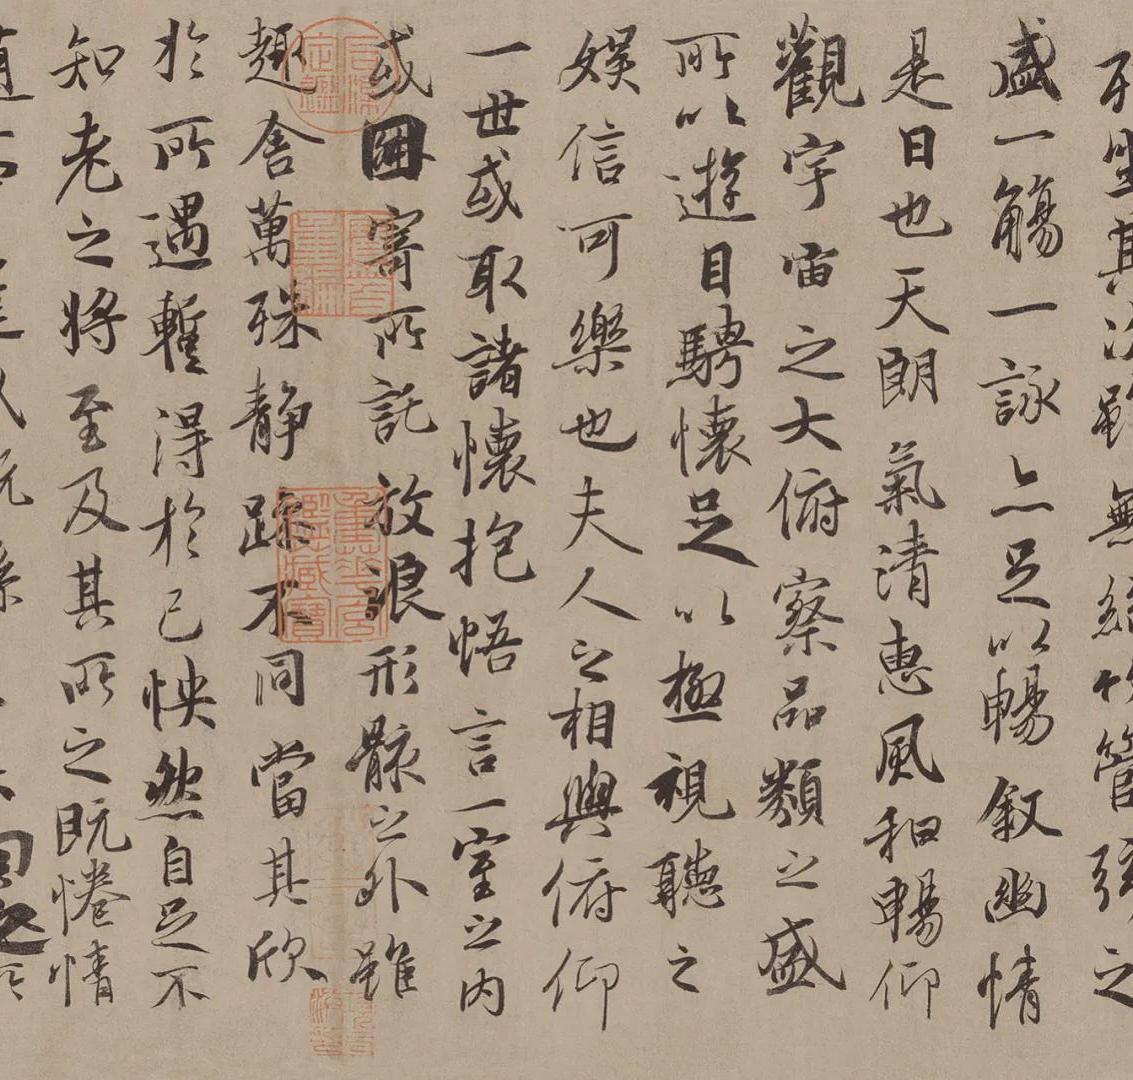 列坐其次雖無絲竹管弦之
盛一觴一詠亦足以暢叙幽情
是日也天朗氣清惠風和暢仰
觀宇宙之大俯察品類之盛
所以遊目騁懷足以極視聽之
娛信可樂也夫人之相與俯仰
一世或取諸懷抱悟言一室之內
或因寄所託放浪形骸之外雖
趣舍萬殊静躁不同當其欣
於所遇暫得於己怏然自足不
知老之將至及其所之既惓情